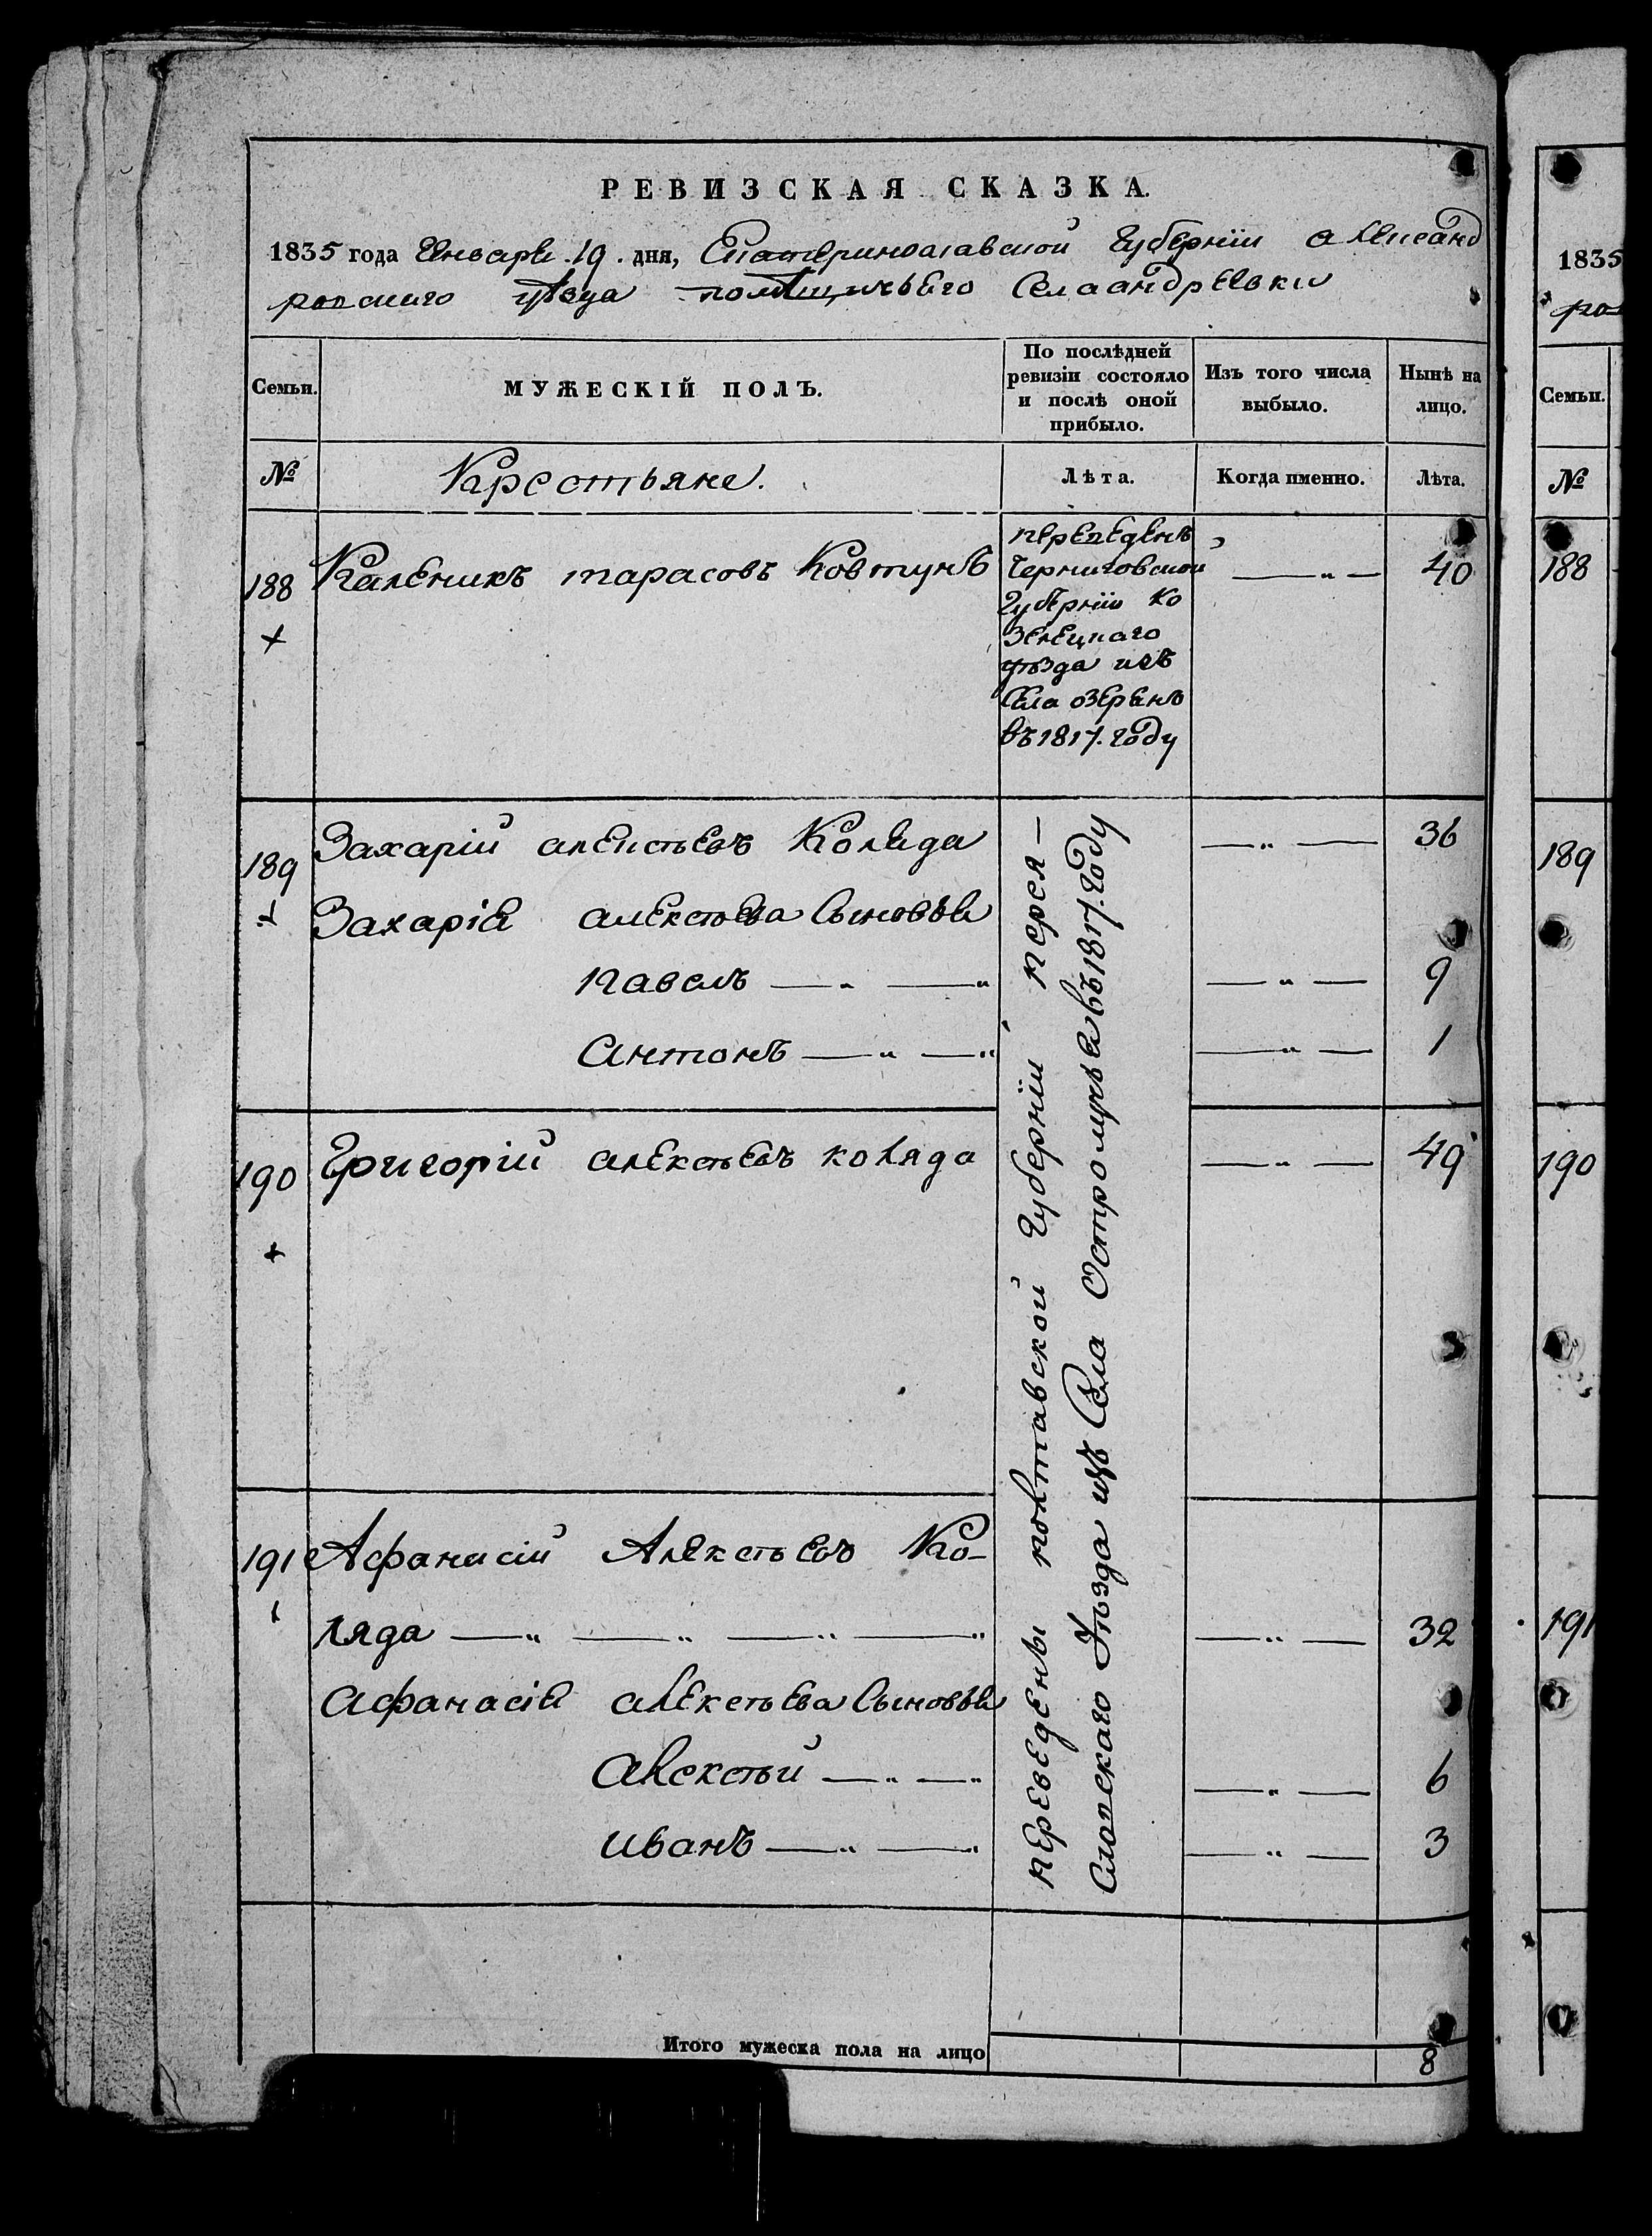 РЕВИЗСКАЯ СКАЗКА.
1835 года Генваря 19. дня, Екатеринославской Губерніи Александ
ровскаго уѣзда помѣщичьяго Села андрѣевки
Семьи.
МУЖЕСКІЙ ПОЛЪ.
По послѣдней
ревизіи состояло
и послѣ оной
прибыло.
Изъ того числа
выбыло.
Нынѣ на
лицо.
№
Крестьяне.
Лѣта.
Когда именно.
Лѣта.
188
Каленикъ тарасовъ Ковтунъ
переведенъ
Черниговской
Губерніи Ко
зелецкаго
уѣзда изъ
Села озеренъ
въ 1817. году
— „ —
40
189
Захарій алексѣевъ Коляда
— „ —
36
Захарія алексѣева Сыновья
павелъ — „ — „
— „ —
9
Антонъ — „ — „
— „ —
1
190
Григорій алексѣевъ коляда
— „ —
49
191
Афанасій Алексѣевъ Ко-
ляда — „ — „ — „ — „
— „ —
32
Афанасія алексѣева Сыновья
Алексѣй — „ — „
— „ —
6
иванъ — „ — „
— „ —
3
переведены полтавской Губерніи перея-
Словскаго Уѣзда изъ Села Остролучья въ 1817. Году
Итого мужеска пола на лицо
8
1835
ро
Семьи.
№
188
189
190
191